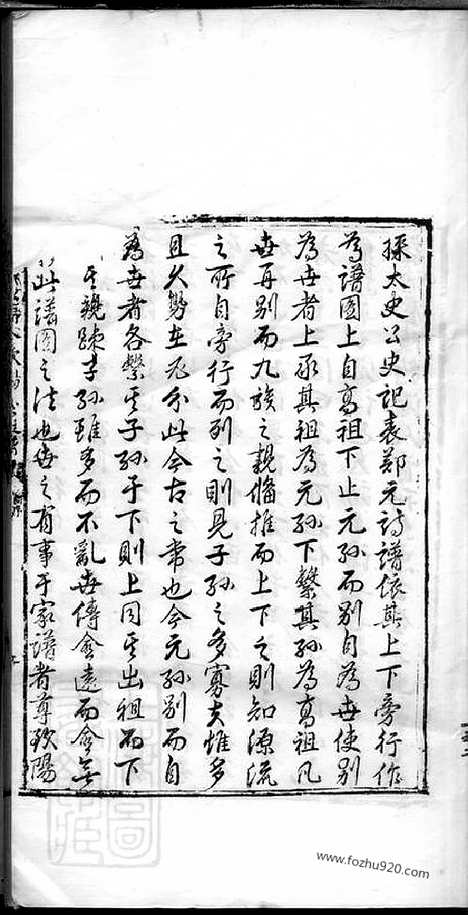 採太史公史記表鄭元詩譜依其上下旁行作
為譜圖上自高祖下止元孫而別自為世使別
為世者上承其祖為元孫下繫其孫為高祖凡
世再別而九族之親備推而上下之則知源流
之所自旁行而列之則見子孫之多寡夫惟多
且久勢在必分此今古之常也今元孫別而自
為世者各繫其子孫于下則上同其出祖而下
其親疎子孫雖多而不亂世傳愈遠而愈無
此譜圖之法也世之有事于家譜者尊歐陽
www.fozhu920.com